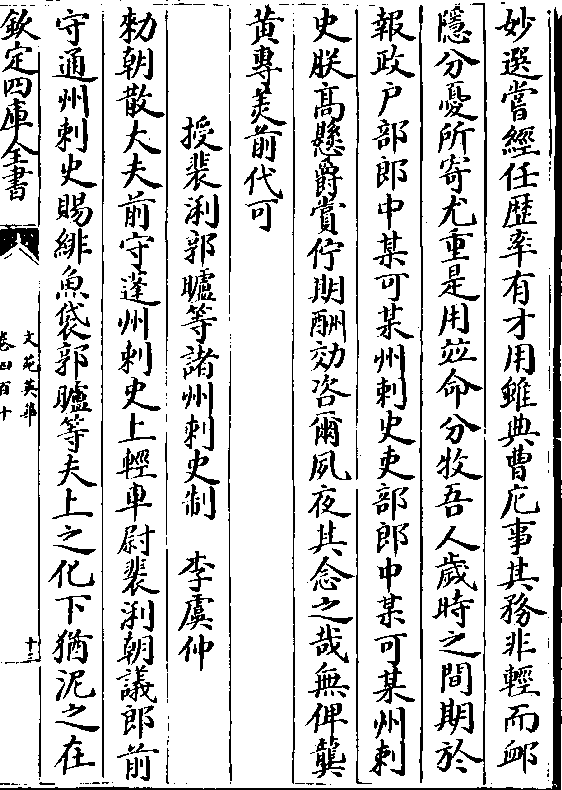 妙選嘗經任歴率有才用雖典曹庀事其務非輕而䘏
隱分憂所寄尤重是用並命分牧吾人歳時之間期於
報政户部郎中某可某州刺史吏部郎中某可某州刺
史朕髙懸爵賞佇期酬効咨爾夙夜其念之哉無俾龔
黄專美前代可
授裴浰郭矑等諸州刺史制　李虞仲
勅朝散大夫前守蓬州刺史上輕車尉裴浰朝議郎前
守通州刺史賜緋魚袋郭矑等夫上之化下猶泥之在
欽定四庫全書
文苑英華
卷四百十
十三